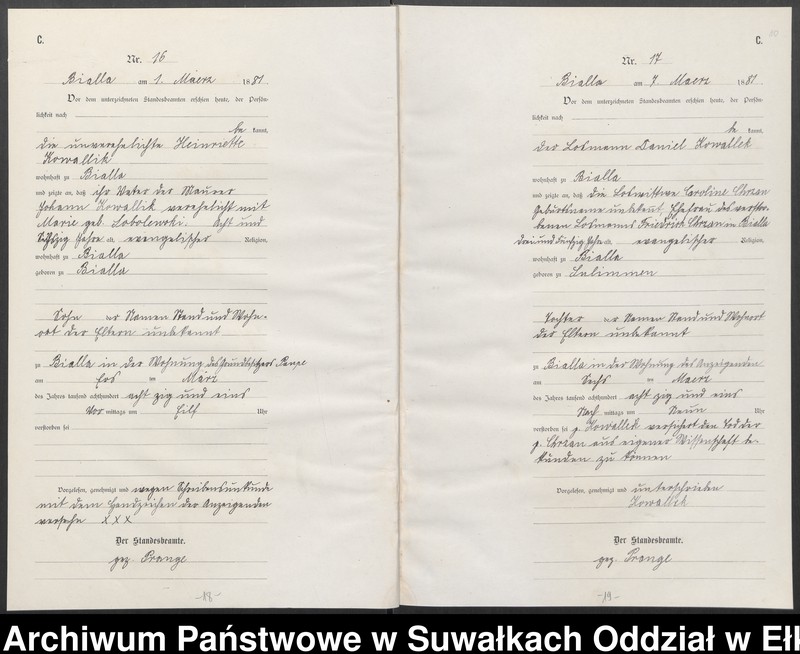 C.
Nr. 16
Bialla am 1. Maerz 1881.
Vor dem unterzeichneten Standesbeamten erschien heute, der Persön-
lichkeit nach
be kannt,
die unverehelichte Heinriette
Kowallik
wohnhaft zu Bialla
und zeigte an, daß ihr Vater der Maurer
Johann Kowallik verehelicht mit
Marie geb. Sobolewski. Acht und
Sechszig Jahre alt, evangelischer Religion,
wohnhaft zu Bialla
geboren zu Bialla
Sohn der Namen Stand und Wohn-
ort der Eltern unbekannt
zu Bialla in der Wohnung des Grundbesitzers
am ten März
des Jahres tausend achthundert acht zig und eins
Vor mittags um Eilf Uhr
verstorben sei
Vorgelesen, genehmigt und wegen Schreibensunkunde
mit dem Handzeichen der Anzeigenden
versehn XXX
Der Standesbeamte.
gez. Prange
-18-
C.
Nr. 17
Bialla am 7. Maerz 1881.
Vor dem unterzeichneten Standesbeamten erschien heute, der Persön-
lichkeit nach
be kannt,
der Losmann Daniel Kowallek
wohnhaft zu Bialla
und zeigte an, daß die Loswittwe Caroline Chrzan
Geburtsname unbekannt, Ehefrau des verstor-
benen Losmanns Friedrich Chrzan in Bialla
Drei und Fünfzig Jahre alt, evangelischer Religion,
wohnhaft zu Bialla
geboren zu Sulimmen
Tochter der Namen Stand und Wohnort
der Eltern unbekannt
zu Bialla in der Wohnung des Anzeigenden
am Sechs ten Maerz
des Jahres tausend achthundert acht zig und eins
Nach mittags um Neun Uhr
verstorben sei p. Kowallek versichert den Tod der
p. Chrzan aus eigener Wissenschaft be-
kunden zu können
Vorgelesen, genehmigt und unterschrieben
Kowallek
Der Standesbeamte.
gez. Prange
-19-
Archiwum Państwowe w Suwałkach Oddział w Ełk